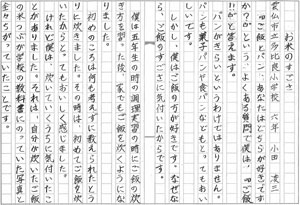 お米のすごさ
雲仙市立多比良小学校 六年 小田 凌三
「ご飯とパン、あなたはどちらが好きです
か？」という、よくある質問で僕は、「ご飯
!!」と答えます。
パンがきらいというわけではありません。
パンも菓子パンや食パンなどもとてもおい
しいです。
しかし、僕はご飯の方が好きです。なぜな
ら、ご飯のすごさに気付いたからです。
僕は五年生の時の調理実習の時にご飯の炊
き方を習った後、家でもご飯を炊くようにな
りました。
初めのころは何も考えずに教えられたとう
りに炊きました。その時は、初めてご飯を炊
いたからと、てもおいしく感じました。
けれど僕は、炊いていくうちに気付いたこ
とがありました。それは、自分が炊いたご飯
の米つぶが学校の教科書にのっていた写真と
全々ちがっていたことです。